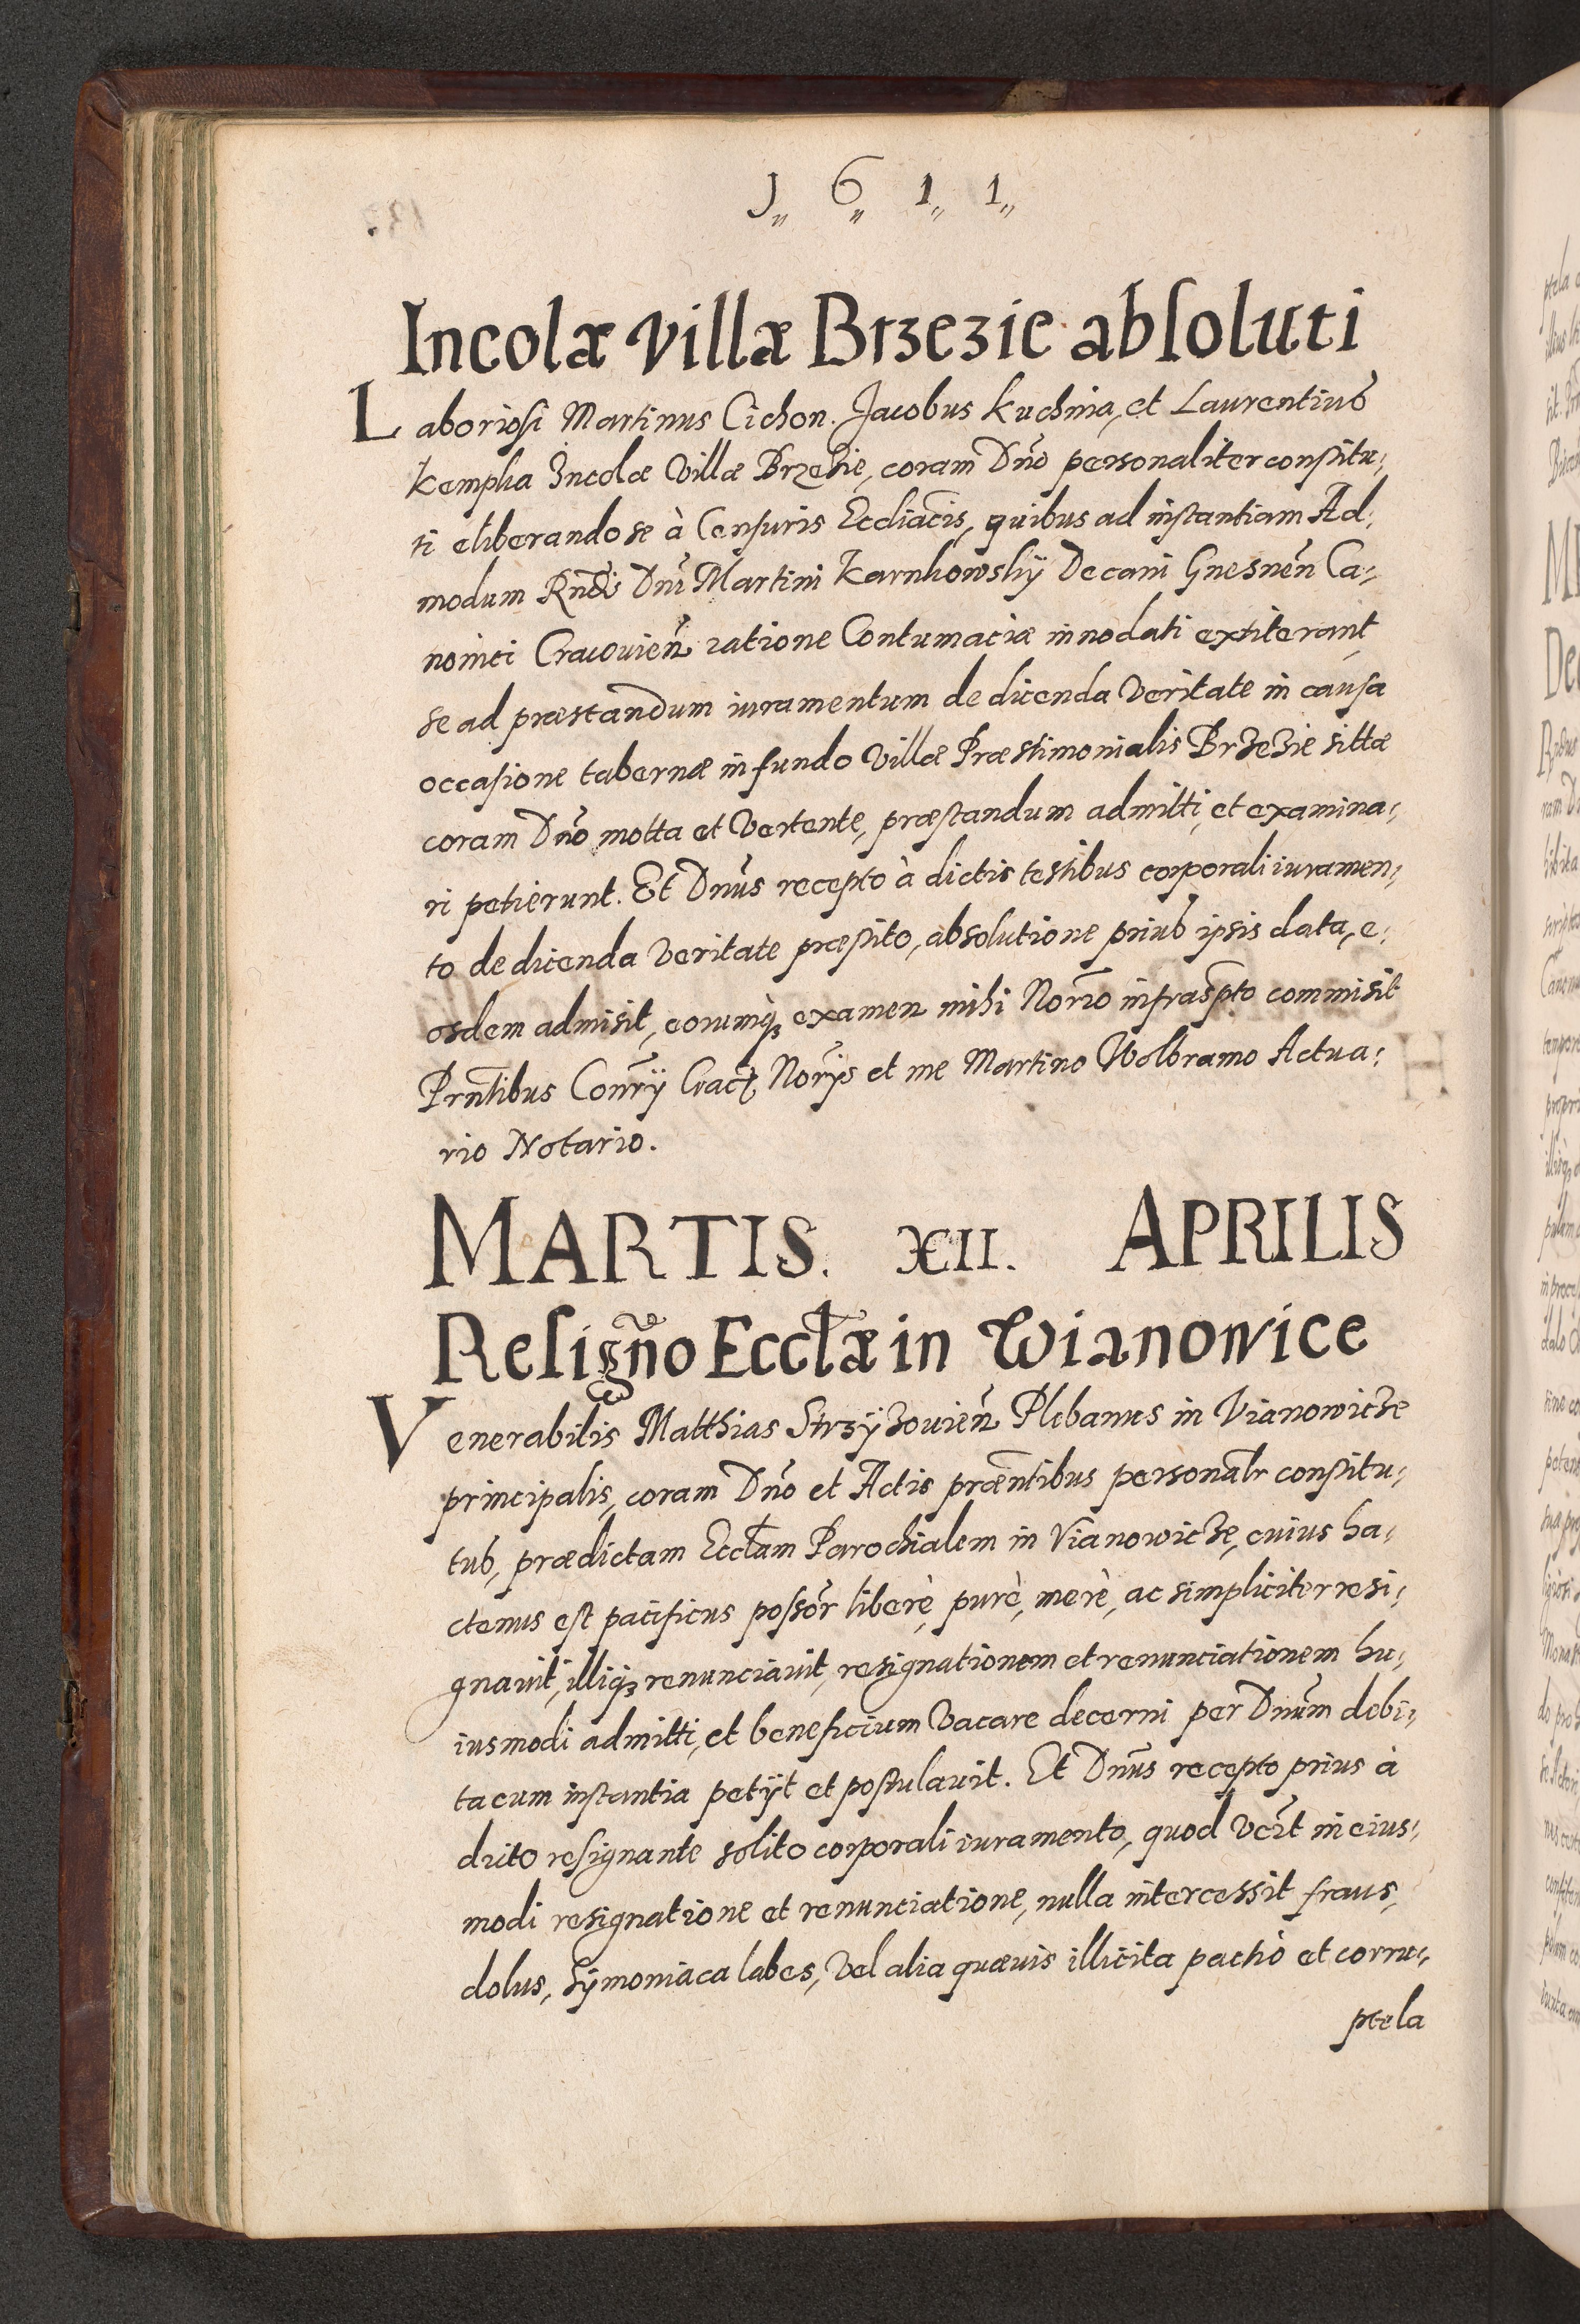 J„ 6„ 1„ 1„
Incolæ villæ Brzezie absoluti
Laboriosi Martinus Cichon. Jacobus Kuchnia, et Laurentius
Kempka Incolæ Villæ Brzezie, coram Dño personaliter constitu,
ti eliberando se à Censuris Eccliacis, quibus ad instantiam Ad,
modum Rndi Dni Martini Karnkowskÿ Decani Gnesneñ Ca,
nonici Cracouieñ ratione Contumaciæ innodati extiterant,
se ad præstandum iuramentum de dicenda Veritate in causa
occasione tabernæ in fundo Villæ Præstimonialis Brzezie sittæ
coram Dño motta et Vertente, præstandum admitti, et examina,
ri petierunt. Et Dnus recepto à dictis testibus corporali iuramen,
to de dicenda Veritate præstito, absolutione prius ipsis data, e,
osdem admisit, eorumq; examen mihi Norio infrascpto commisit
Prntibus Conrÿ Crac; Norÿs et me Martino Wolbramo Actua,
rio Notario.
MARTIS. XII. APRILIS
Resignõ Ecclæ in Wianowice
Venerabilis Matthias Strzÿzouieñ Plebanus in Vianowicze
principalis, coram Dño et Actis præntibus personalr constitu,
tus, prædictam Ecclam Parochialem in Vianowicze, cuius ha,
ctenus est pacificus possor liberè, purè, merè, ac simpliciter resi,
gnauit, illiq; renunciauit, resignationem et renunciationem hu,
iusmodi admitti, et beneficium Vacare decerni per Dnum debi,
ta cum instantia petÿt et postulauit. Et Dnus recepto prius à
dicto resignante solito corporali iuramento, quod Vcñt in eius,
modi resignatione et renunciatione, nulla intercessit fraus,
dolus, Sÿmoniaca labes, Vel alia quæuis illicita pactio et corru,
ptela